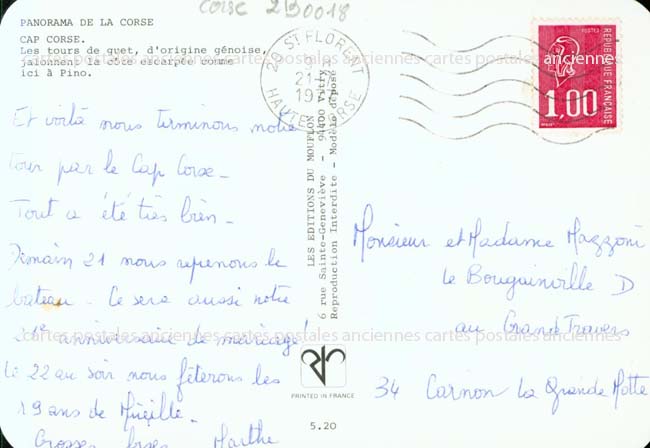 Corse 2B0018
PANORAMA DE LA CORSE
CAP CORSE.
Les tours de guet, d'origine génoise,
jalonnent la côte escarpée comme
ici à Pino.
20 ST FLORENT
21
HAUTE CORSE
POSTES
REPUBLIQUE FRANÇAISE
1,00
cartes postales anciennes cartes postales anciennes cartes postales anciennes
Et voilà nous terminons notre
tour par le Cap Corse_
Tout a été très bien_
Demain 21 nous reprenons le
bateau_ Ce sera aussi notre
21e anniversaire de mariage!
Le 22 au soir nous fêterons les
19 ans de Mireille_
Grosses bises Marthe
LES EDITIONS DU MOUFLON
6 rue Sainte-Geneviève - 94400 Vitry
Reproduction Interdite - Modèle déposé
Monsieur et Madame Mazzoni
Le Bougainville D
au Grand Travers
34 Carnon La Grande Motte
cartes postales anciennes cartes postales anciennes cartes postales anciennes
PRINTED IN FRANCE
5.20